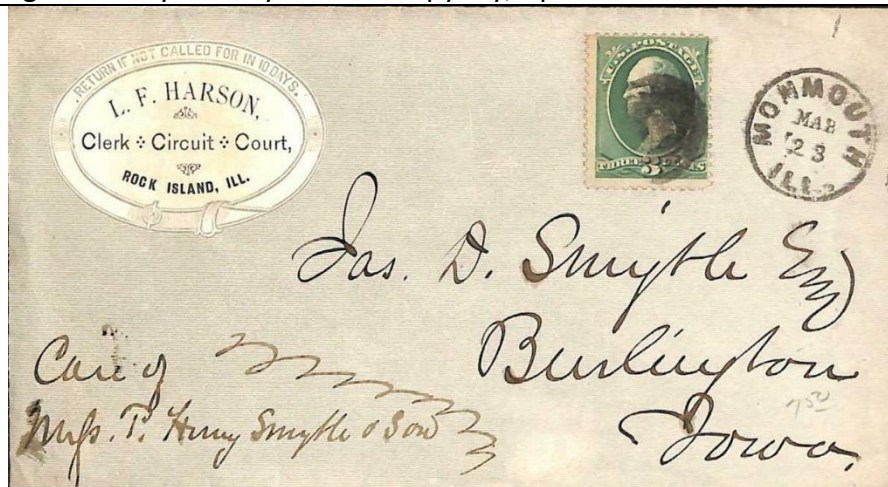 RETURN IF NOT CALLED FOR IN 10 DAYS.
L. F. HARSON,
Clerk Circuit Court,
ROCK ISLAND, ILL.
U.S. POSTAGE
THREE 3 CENTS
MONMOUTH
MAR
23
ILL.
Jas. D. Smythe Esq
Burlington
Iowa.
Care of
Mess. T. Henry Smythe & Son